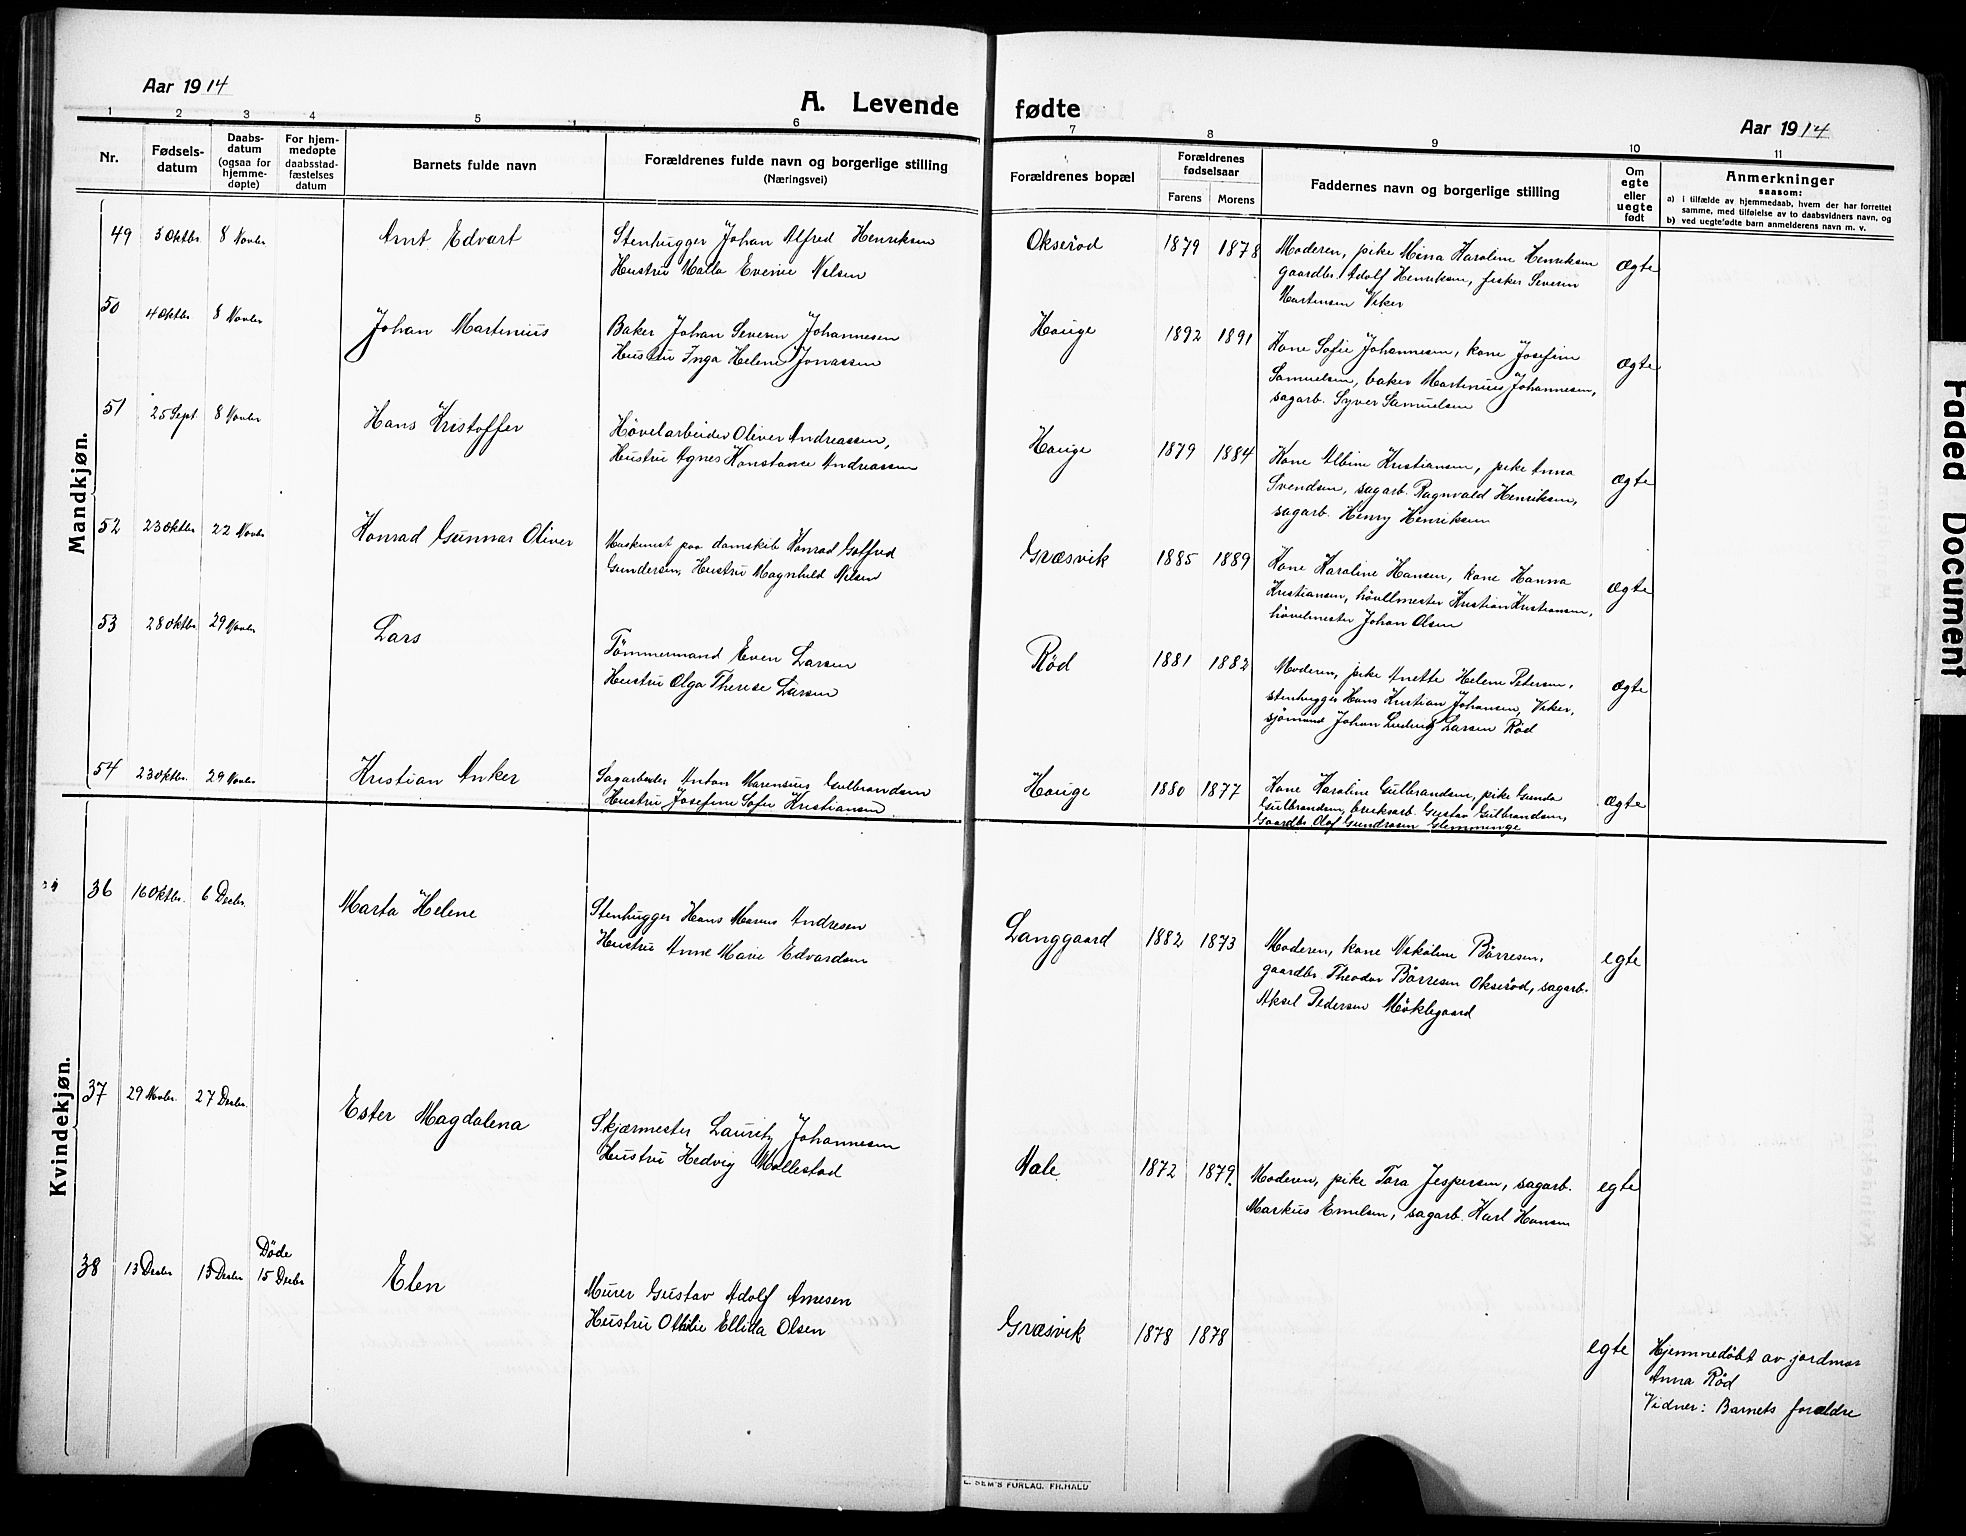 Aar 1914
A. Levende fødte
Aar 1914
1 2 3 4 5 6 7 8 9 10 11
Nr.
Fødsels-
datum
Daabs-
datum
(ogsaa for
hjemme-
døpte)
For hjem-
medøpte
daabsstad-
fæstelses
datum
Barnets fulde navn
Forældrenes fulde navn og borgerlige stilling
(Næringsvei)
Forældrenes bopæl
Forældrenes
fødselsaar
Farens Morens
Faddernes navn og borgerlige stilling
Om
egte
eller
uegte
født
Anmerkninger
saasom:
a) i tilfælde av hjemmedaab, hvem der har forrettet
samme, med tilføielse av to daabsvidners navn, og
b) ved uegtefødte barn anmelderens navn m. v.
Mandkjøn.
49 3 Oktbr. 8 Novbr Arnt Edvart
Stenhugger Johan Alfred Henriksen
Hustru Malla Evenie Nilsen
Okserød 1879 1878
Moderen, pike Mina Karoline Henriksen
gaardbr. Adolf Henriksen, fisker Severin
Martinsen Viker
ægte
50 4 Oktbr 8 Novbr Johan Martinius
Baker Johan Severin Johannesen
Hustru Inga Helene Jonassen
Hauge 1892 1891
Kone Sofie Johannesen, kone Josefine
Samuelsen, baker Martinius Johannesen,
sagarb. Syver Samuelsen
ægte
51 25 Sept. 8 Novbr Hans Kristoffer
Høvelarbeider Oliver Andreassen,
Hustru Agnes Konstance Andreassen
Hauge 1879 1884
Kone Albine Kristiansen, pike Anna
Svendsen, sagarb. Ragnvald Henriksen,
sagarb. Henry Henriksen
ægte
52 23 Oktbr 22 Novbr Konrad Gunnar Oliver
Maskinist paa damskib Konrad Gotfred
Gundersen, Hustru Magnhild Nilsen
Græsvik 1885 1889
Kone Karoline Hansen, kone Hanna
Kristiansen, høvllmester Kristian Kristiansen,
høvelmester Johan Olsen
ægte
53 28 Oktbr. 29 Novbr Lars
Tømmermand Even Larsen
Hustru Olga Therese Larsen
Rød 1881 1882
Moderen, pike Anette Helene Petersen,
stenhugger Hans Kristian Johansen, Viker,
sjømand Johan Ludvig Larsen Rød
ægte
54 23 Oktbr. 29 Novbr Kristian Anker
Sagarbeider Anton Marensius Gulbrandsen
Hustru Josefine Sofie Kristiansen
Hauge 1880 1877
Kone Karoline Gulbrandsen, pike Gunda
Gulbrandsen, bruksarb. Gustav Gulbrandsen,
Gaardbr Olaf Gundrosen Glemminge
ægte
Kvindekjøn.
36 16 Oktbr. 6 Decbr. Marta Helene
Stenhugger Hans Marius Andresen
Hustru Anne Marie Edvardsen
Langgaard 1882 1873
Moderen, kone Nikoline Børresen,
gaardbr Theodor Børresen Okserød, sagarb.
Aksel Pedersen Møklegaard
egte
37 29 Novbr. 27 Decbr. Ester Magdalena
Skjærmester Lauritz Johannesen
Hustru Hedvig Mollestad
Dale 1872 1879.
Moderen, pike Tora Jespersen, sagarb.
Markus Emilsen, sagarb. Karl Hansen
egte
38 13 Decbr 13 Decbr Døde
15 Decbr
Elen
Murer Gustav Adolf Arnesen
Hustru Othilie Ellida Olsen
Græsvik 1878 1878
egte
Hjemmedøbt av jordmor
Anna Rød
Vidner: Barnets forældre
E. SEM'S FORLAG, FR.HALD
Faded Document